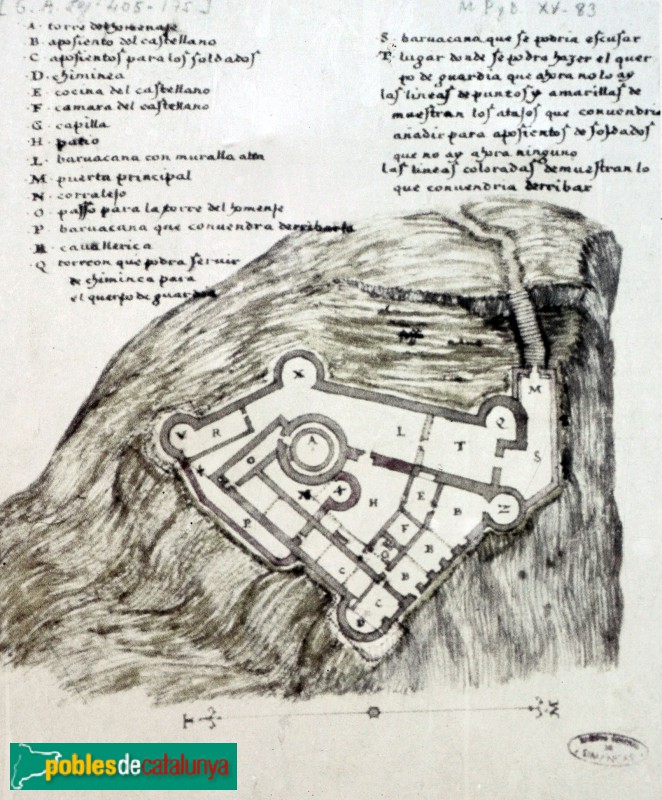 [G. A. Leg. 405-175]
M P y D. XV-83
A · torre del homenaje
B · aposiento del castellano
C · aposientos para los soldados
D · chiminea
E · cocina del castellano
F · camara del castellano
G · capilla
H · patio
L · baruacana con muralla alta
M · puerta principal
N · corralejo
O · passo para la torre del homenje
P · baruacana que convendra derribarla
R · cavallerica
Q · torreon que podra seruir
de chiminea para
el querpo de guardia
S · baruacana que se podria escusar
T · lugar donde se podra hazer el quer
po de guardia que ahora no lo ay
las lineas de puntos y amarillas de
muestran los atajos que convendria
añadir para aposientos de soldados
que no ay ahora ninguno
las lineas coloradas demuestran lo
que convendria derribar
M
X
Q
V
R
A
L
T
S
O
X
H
E
B
Z
P
F
B
C
B
C
D
T
M
pobles de catalunya